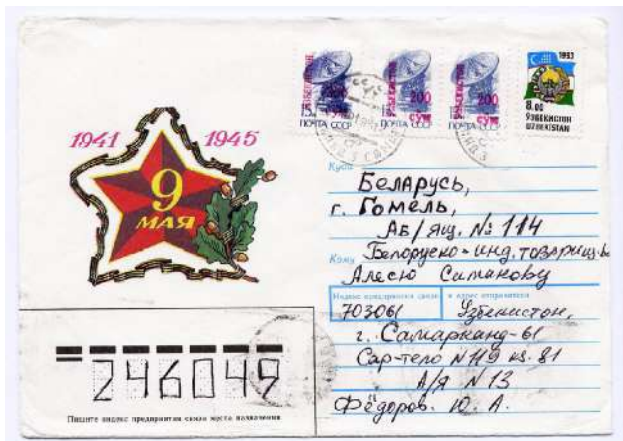 1941 1945
9
МАЯ
УЗБЕКИСТОН
15к
200
СУМ
ПОЧТА СССР
УЗБЕКИСТОН
200
СУМ
ПОЧТА СССР
УЗБЕКИСТОН
200
СУМ
ПОЧТА СССР
1993
8.00
ЎЗБЕКИСТОН
UZBEKISTAN
Куда
Беларусь,
г. Гомель,
Аб/ящ. № 114
Кому Белоруско-инд. товарищ-во
Алесю Симакову
Индекс предприятия связи и адрес отправителя
703061 Узбекистон,
г. Самарканд-61
Сар-тепо N 119 кв. 81
А/Я N 13
Фёдоров. Ю. А.
246049
Пишите индекс предприятия связи места назначения